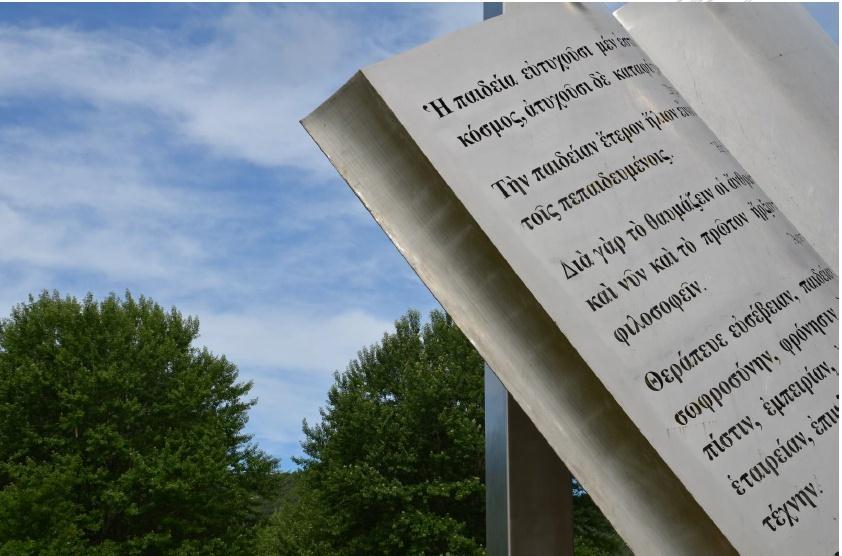 Ἡ παιδεία εὐτυχοῦσι μέν
κόσμος, ἀτυχοῦσι δὲ
Τὴν παιδείαν ἕτερον ἥλιον
τοῖς πεπαιδευμένοις.
Διὰ γὰρ τὸ θαυμάζειν οἱ
καὶ νῦν καὶ τὸ πρῶτον
φιλοσοφεῖν.
Θεράπευε εὐσέβειαν,
σωφροσύνην, φρόνησιν
πίστιν, ἐμπειρίαν,
ἑταιρείαν,
τέχνην.